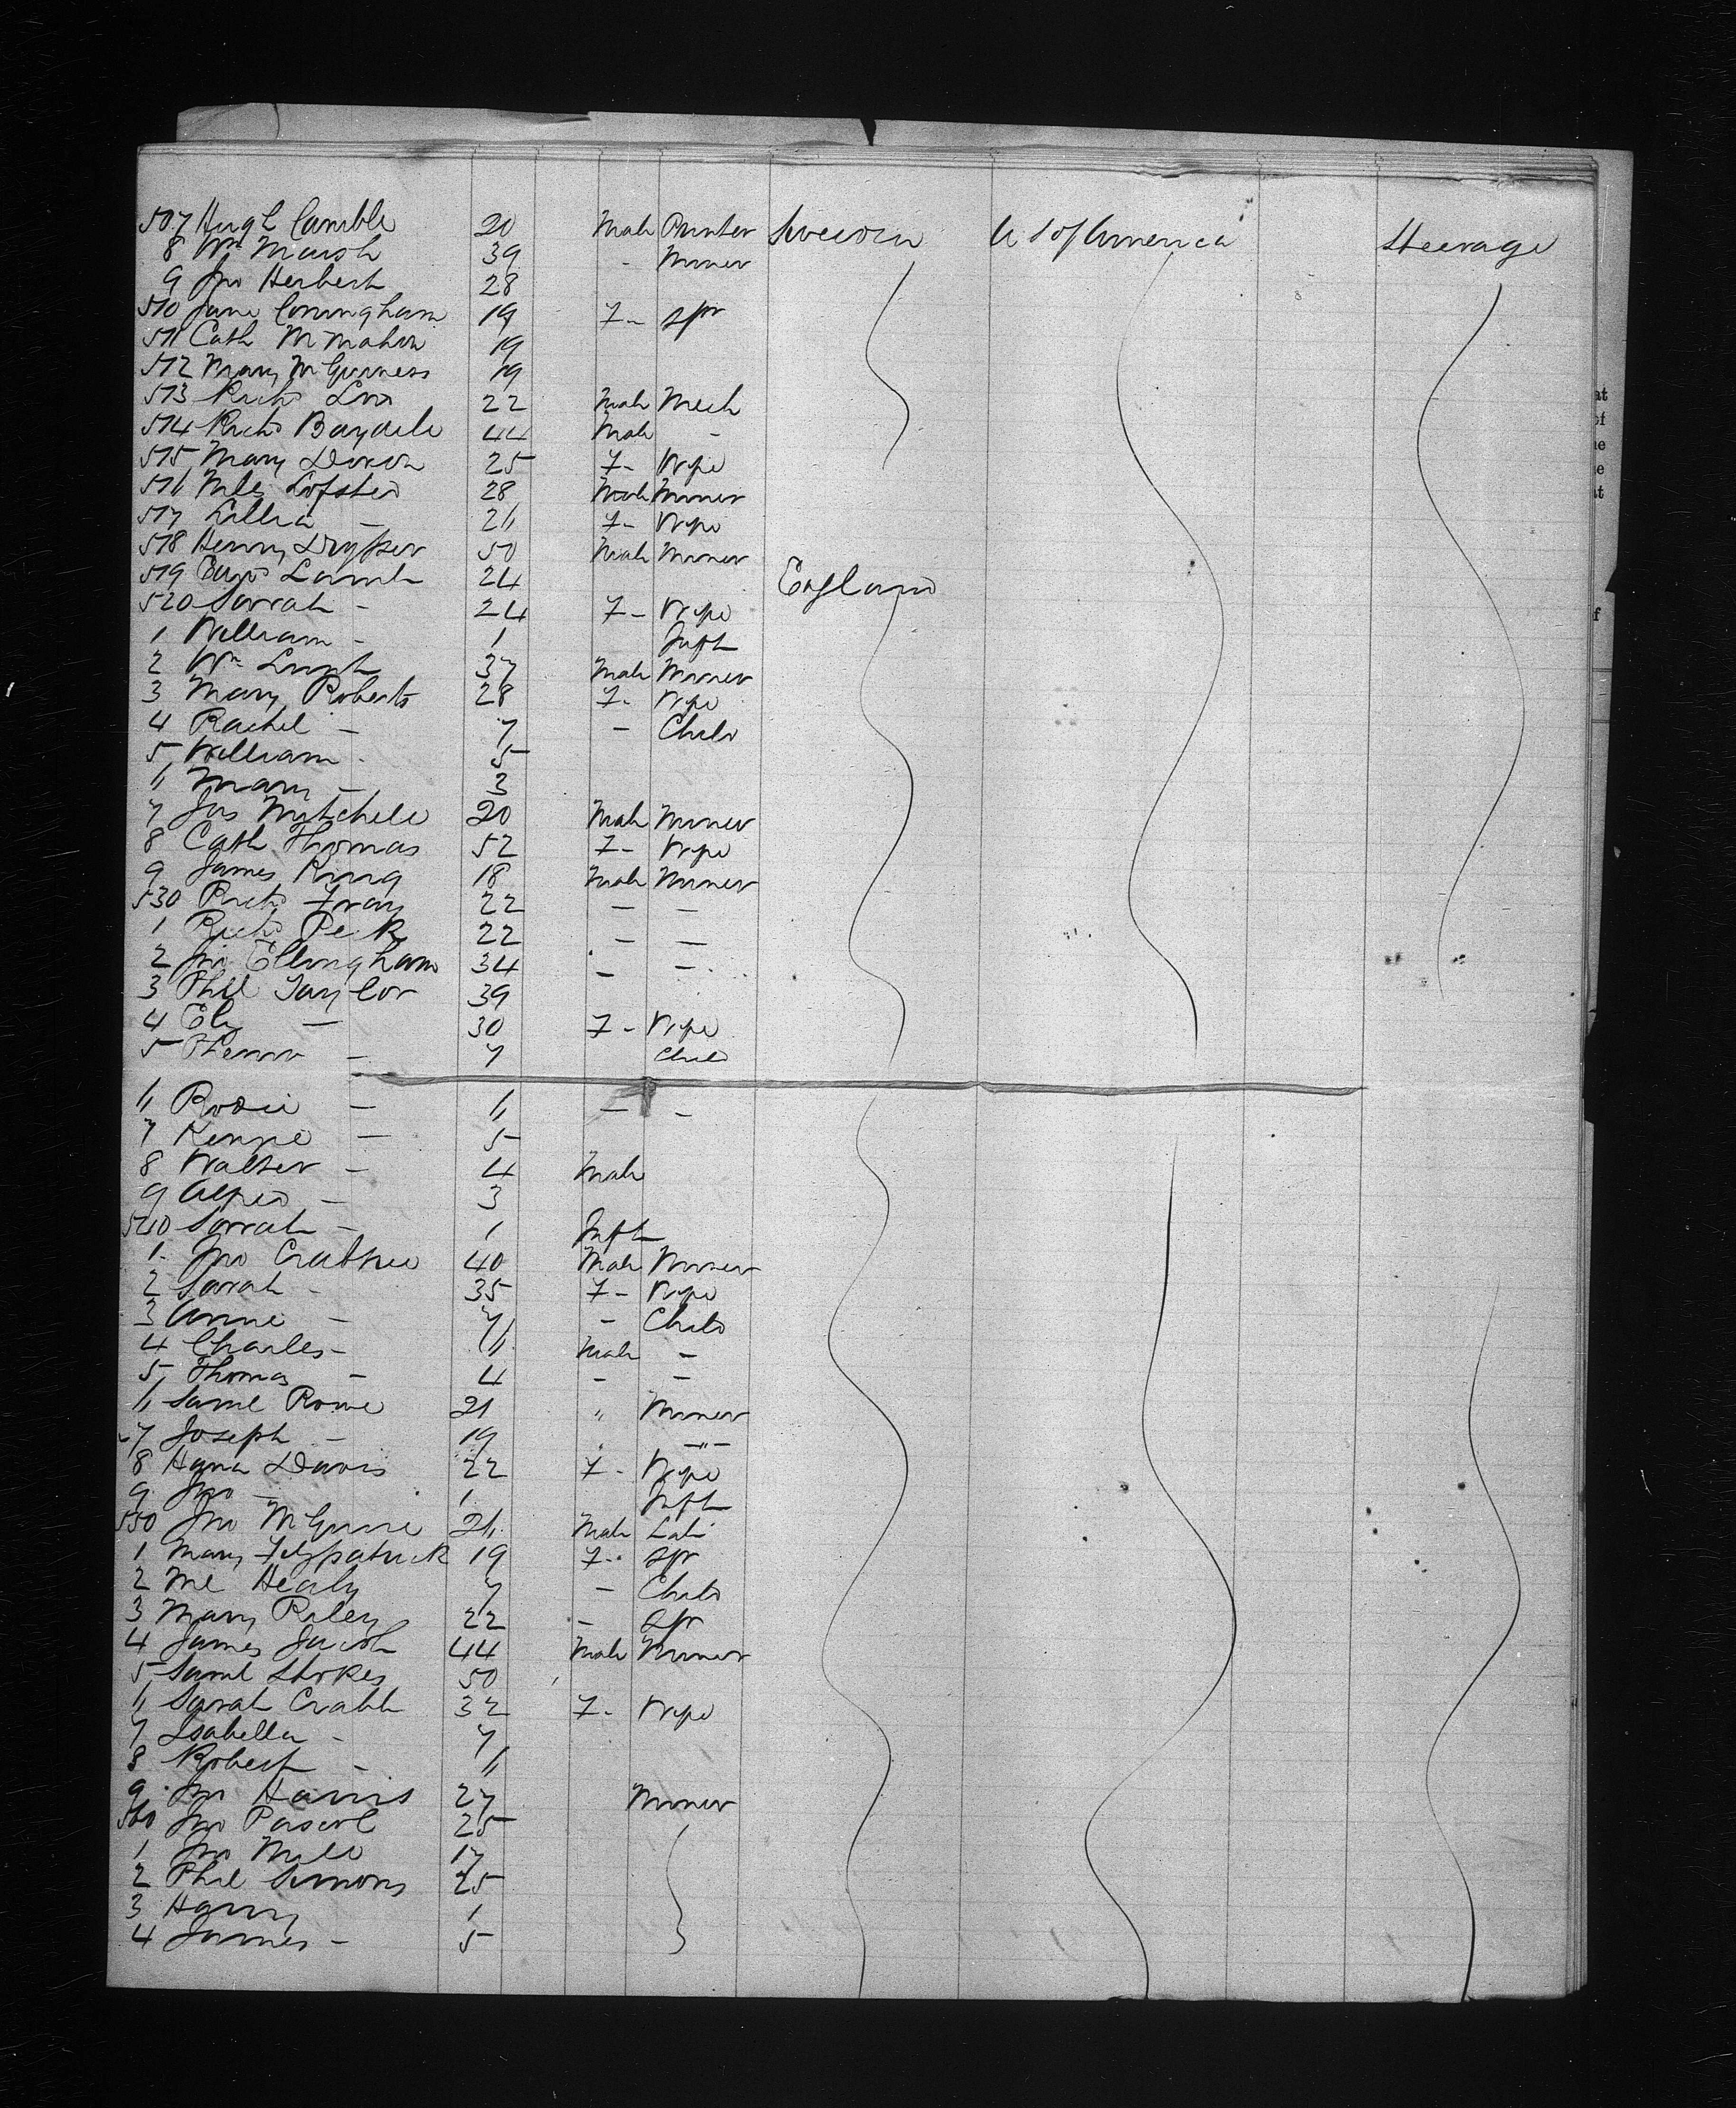 507 Hugh Camble 20 Male Printer Sweden U S of America Steerage
8 Wm Marsh 39 - Miner
9 Jno Herbert 28
510 Jane Coningham 19 F- Spr
511 Cath McMahon 19
512 Mary McGuiness 19
513 Richd 22 Male Mech
514 Richd 44 Male -
515 Mary Dixon 25 F- Wife
516 Nils Lofsted 28 Male Miner
517 - 26 F- Wife
518 Henry 50 Male Miner
519 Lamb 24 England
520 Sarrah - 24 F- Wife
1 William - 1 Inft
2 Wm 37 Male Miner
3 Mary Roberts 28 F- Wife
4 Rachel - 7 - Child
5 William - 5
6 Mary - 3
7 Jas Mytchele 20 Male Miner
8 Cath Thomas 52 F- Wife
9 James King 18 Male Miner
530 Richd 22 - -
1 Richd Peck 22 - -
2 Jno Ellingham 34 - -
3 Phil Taylor 39
4 - 30 F- Wife
5 - 7 Child
6 Rosie - 6 - -
7 - 5
8 Walter - 4 Male
9 Alfred - 3
540 Sarrah - 1 Inft
1 Jno Crabtree 40 Male Miner
2 Sarah - 35 F- Wife
3 Annie - 7 - Child
4 Charles - 6 Male -
5 Thomas - 4 - -
6 Saml Rowe 21 " Miner
7 Joseph - 19 -"-
8 Hana Davis 22 F- Wife
9 Jno - 1 Inft
550 Jno McGuire 26 Male Lab
1 Mary Fitzpatrick 19 F- Spr
2 Healy 7 - Child
3 Mary Riley 22 - Spr
4 James Jacob 44 Male Miner
5 Saml Stokes 50
6 Sarah Crabb 32 F- Wife
7 Isabella - 7
8 Robert - 6
9 Jno Harris 27 Miner
560 Jno 25
1 Jno 17
2 Phil Simons 25
3 Harry 1
4 James - 5